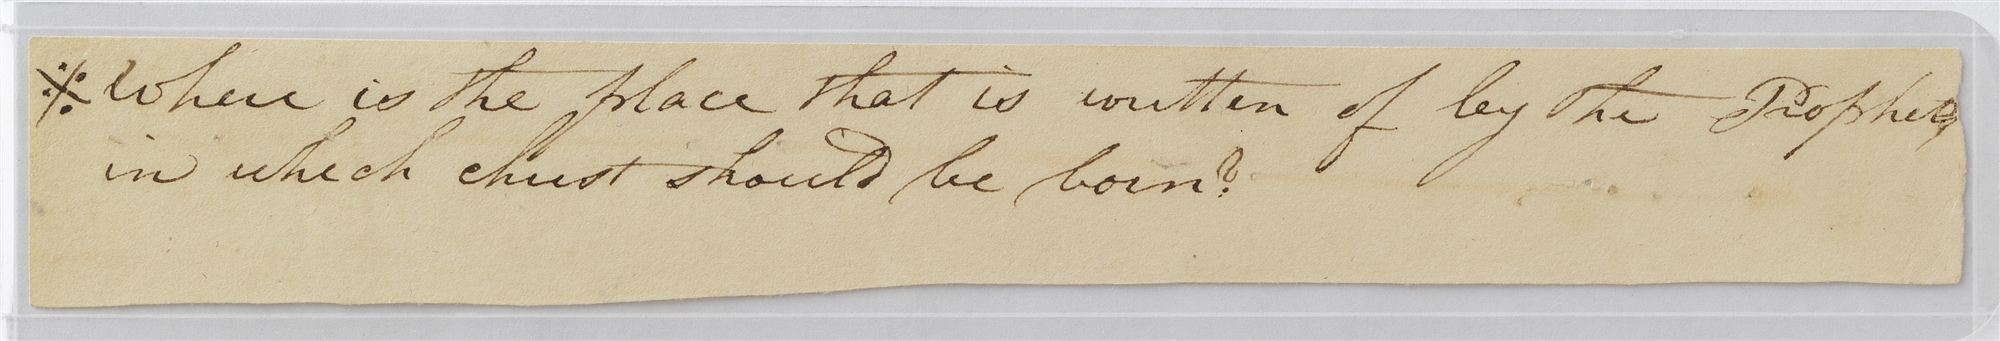 ※ Where is the place that is written of by the Prophets,
in which christ should be born?